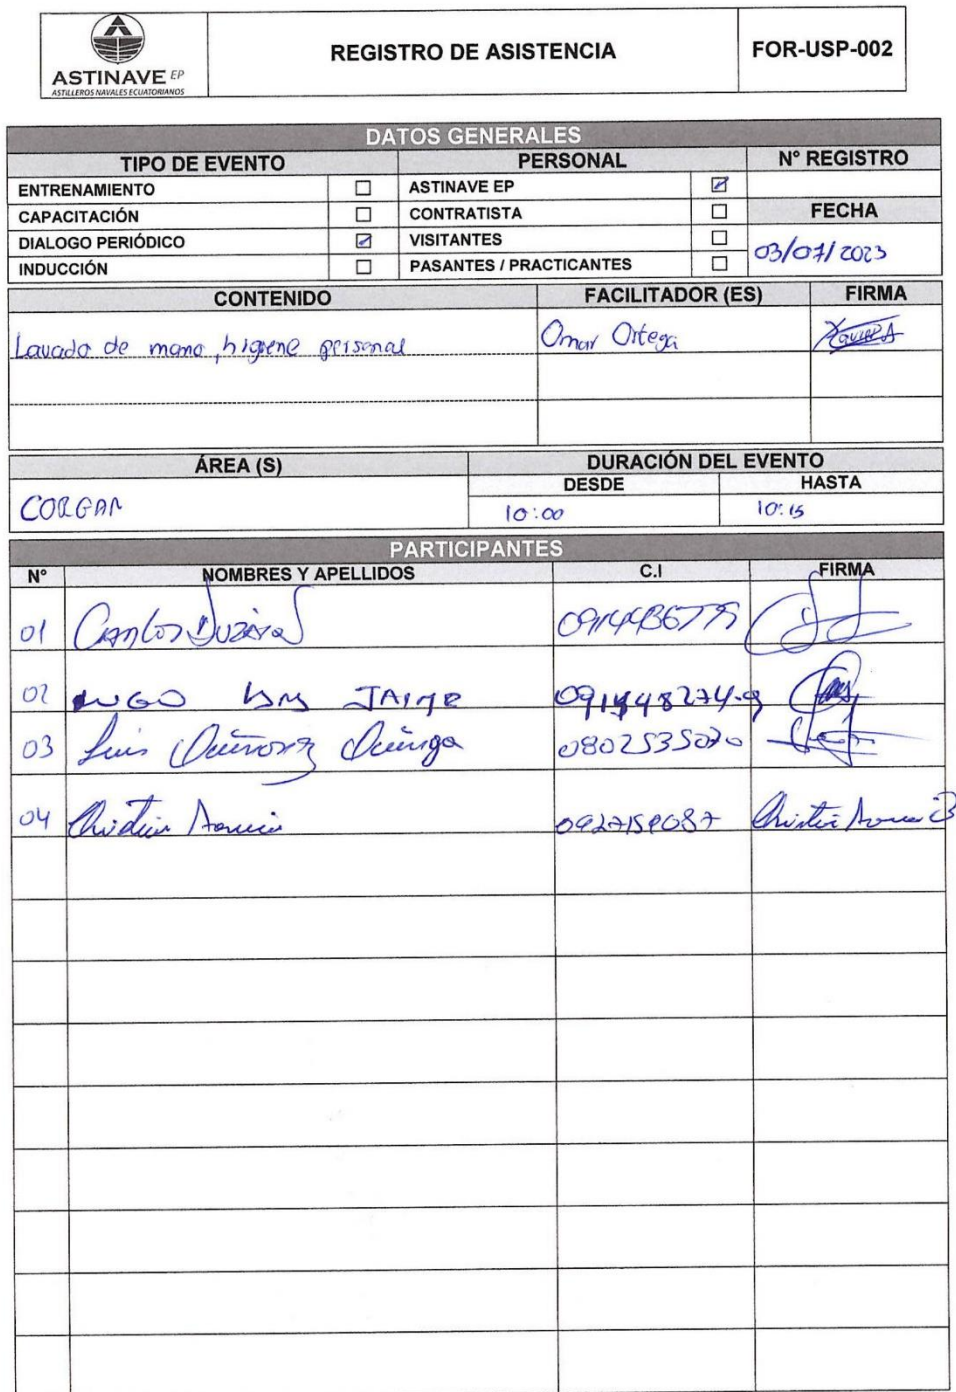 ASTINAVE EP
ASTILLEROS NAVALES ECUATORIANOS
REGISTRO DE ASISTENCIA
FOR-USP-002
DATOS GENERALES
TIPO DE EVENTO PERSONAL N° REGISTRO
ENTRENAMIENTO ☐ ASTINAVE EP ☑
CAPACITACIÓN ☐ CONTRATISTA ☐ FECHA
DIALOGO PERIÓDICO ☑ VISITANTES ☐ 03/07/2023
INDUCCIÓN ☐ PASANTES / PRACTICANTES ☐
CONTENIDO FACILITADOR (ES) FIRMA
Lavado de mano, higiene personal Omar Ortega
ÁREA (S) DURACIÓN DEL EVENTO
DESDE HASTA
CORGAN 10:00 10:15
PARTICIPANTES
N° NOMBRES Y APELLIDOS C.I FIRMA
01 Carlos
02 JAIME
03 Luis 0802535070
04